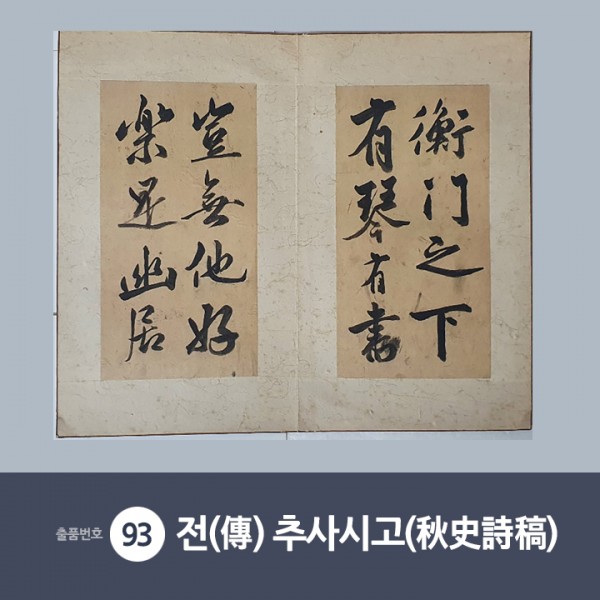 衡门之下
有琴有書
豈無他好
樂是幽居
출품번호 93 전(傳) 추사시고(秋史詩稿)